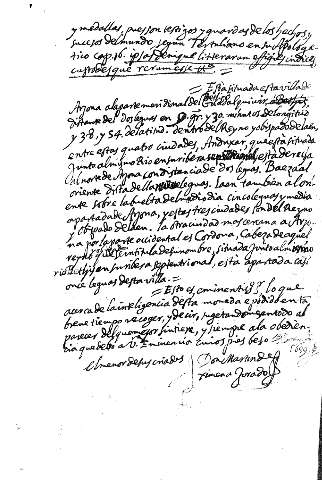 y medallas, pues son testigos y guardas de los hechos y
sucesos del mundo segun Tertuliano en su Apologe
tico cap. 16. ipsas denique litterarum effigies indices
custodesque rerum
= Está situada esta villa de
Arjona a la parte meridional del Guadalquivir
distante del dos leguas en gr. y 30 minutos de longitud
y 38. y 54 de latitud. dentro del Reyno y obispado de Jaen,
entre estas quatro ciudades, Anduxar, que está situada
junto al mismo Rio en su ribera está de
al norte de Arjona con distancia de dos leguas. Baeza al
oriente dista della leguas. Jaen tambien al ori
ente sobre la buelta del medio dia cinco leguas y media
apartada de Arjona, y estas tres ciudades son del Reyno
y obispado de Jaen. la otra ciudad mas cercana a Arjo
na por la parte occidental es Cordova, Cabeza de aquel
reyno y de su nombre, situada junto al mismo
rio Betis en su ribera septentrional, está apartada casi
once leguas desta villa =
= Esto es, eminentis.º Sr. lo que
acerca de la inteligencia desta moneda e podido en ta
breve tiempo recoger, y decir, sugetando mi sentido al
parecer del que mejor sintiere, y siempre a la obedien
cia que debo a V. Eminencia cuios pies beso
el menor de sus criados
Don Martin de
Ximena Jurado